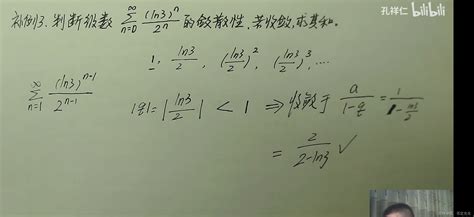 补例3. 判断级数 ∑_{n=0}^{∞} (ln3)^n / 2^n 的敛散性, 若收敛, 求其和。
孔祥仁 bilibili
1, ln3/2, (ln3/2)^2, (ln3/2)^3, ...
∑_{n=1}^{∞} (ln3)^{n-1} / 2^{n-1}
|q| = |ln3/2| < 1 ⇒ 收敛于 a/(1-q) = 1/(1-ln3/2)
= 2/(2-ln3) ✓